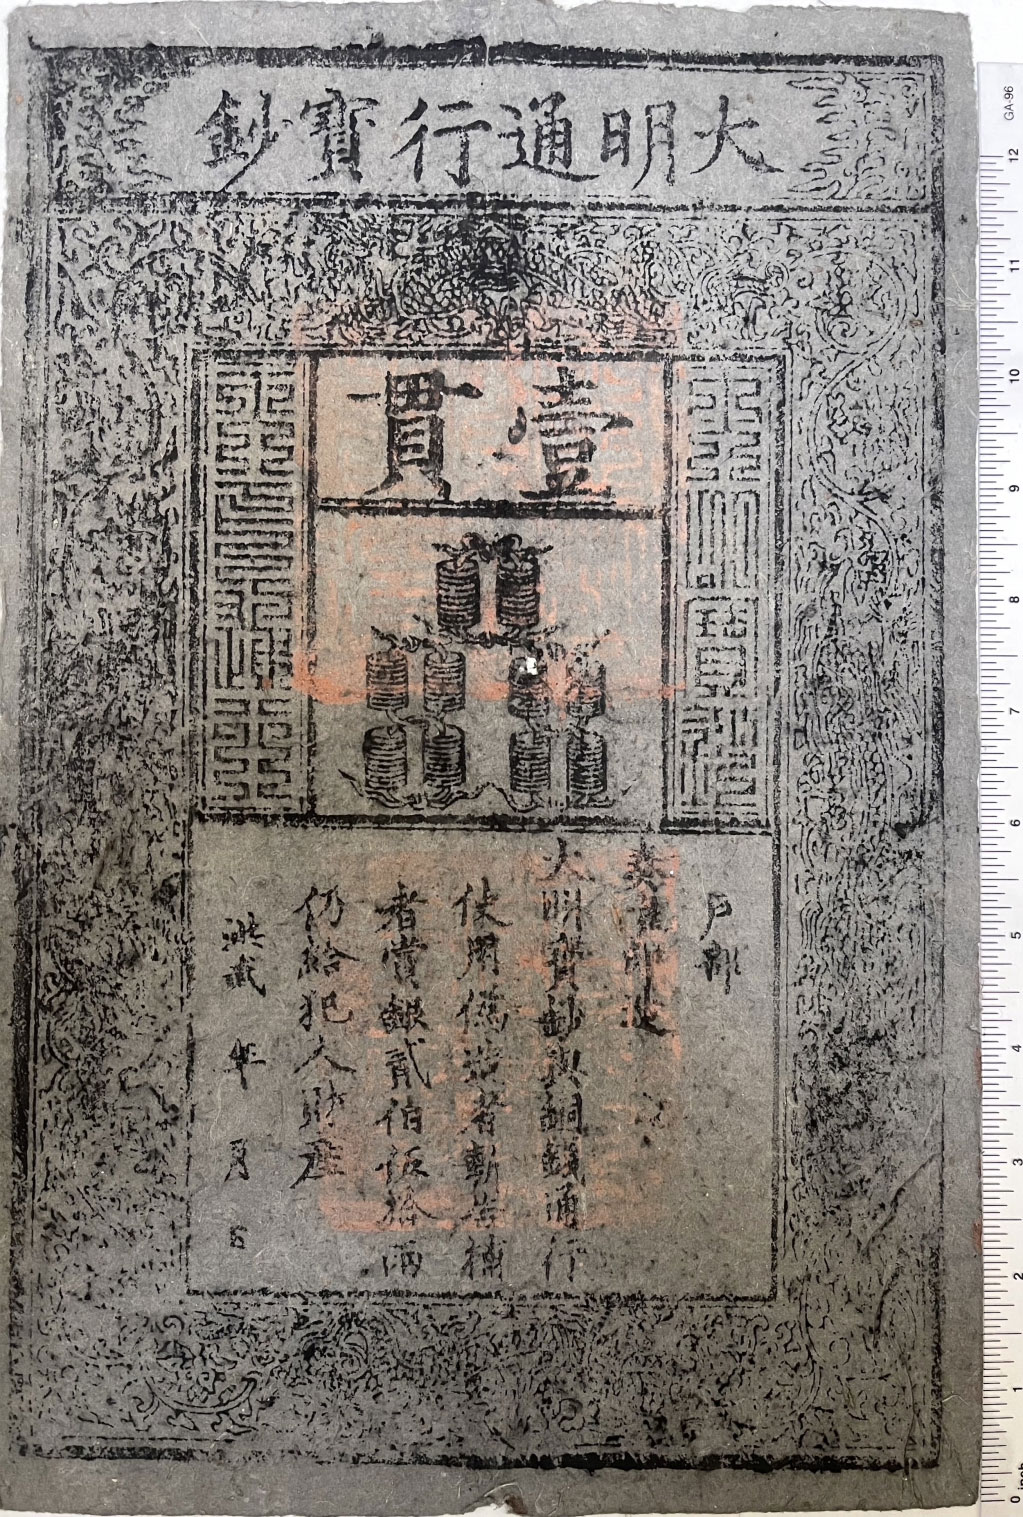 大明通行寶鈔
壹貫
大明寶鈔
天下通行
戶部
奏准印造
大明寶鈔與銅錢通行
使用偽造者斬告捕
者賞銀貳伯伍拾兩
仍給犯人財產
洪武 年 月 日
GA-96
12
11
10
9
8
7
6
5
4
3
2
1
0 inch